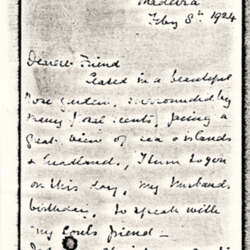 Madeira
Feby 8th 1924
Dearest Friend
Seated in a beautiful
rose garden, surrounded by
many scents, facing a
great view of sea & islands
& headland, I turn to you
on this day, my husband's
birthday, to speak with
my soul's friend —